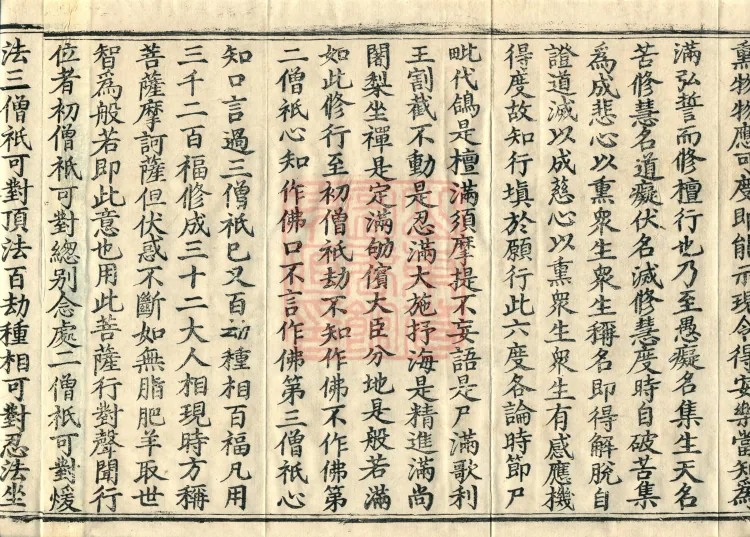 熏物物應可度即能示現令得安樂當知爲
滿弘誓而修檀行也乃至愚癡名集生天名
苦修慧名道癡伏名滅修慧度時自破苦集
爲成悲心以熏衆生衆生稱名即得解脫自
證道滅以成慈心以熏衆生衆生有感應機
得度故知行塡於願行此六度各論時節尸
毗代鴿是檀滿須摩提不妄語是尸滿歌利
王割截不動是忍滿大施抒海是精進滿尚
闍梨坐禪是定滿劬儐大臣分地是般若滿
如此修行至初僧祇劫不知作佛不作佛第
二僧祇心知作佛口不言作佛第三僧祇心
知口言過三僧祇已又百劫種相百福凡用
三千二百福修成三十二大人相現時方稱
菩薩摩訶薩但伏惑不斷如無脂肥羊取世
智爲般若即此意也用此菩薩行對聲聞行
位者初僧祇可對總别念處二僧祇可對煖
法三僧祇可對頂法百劫種相可對忍法坐